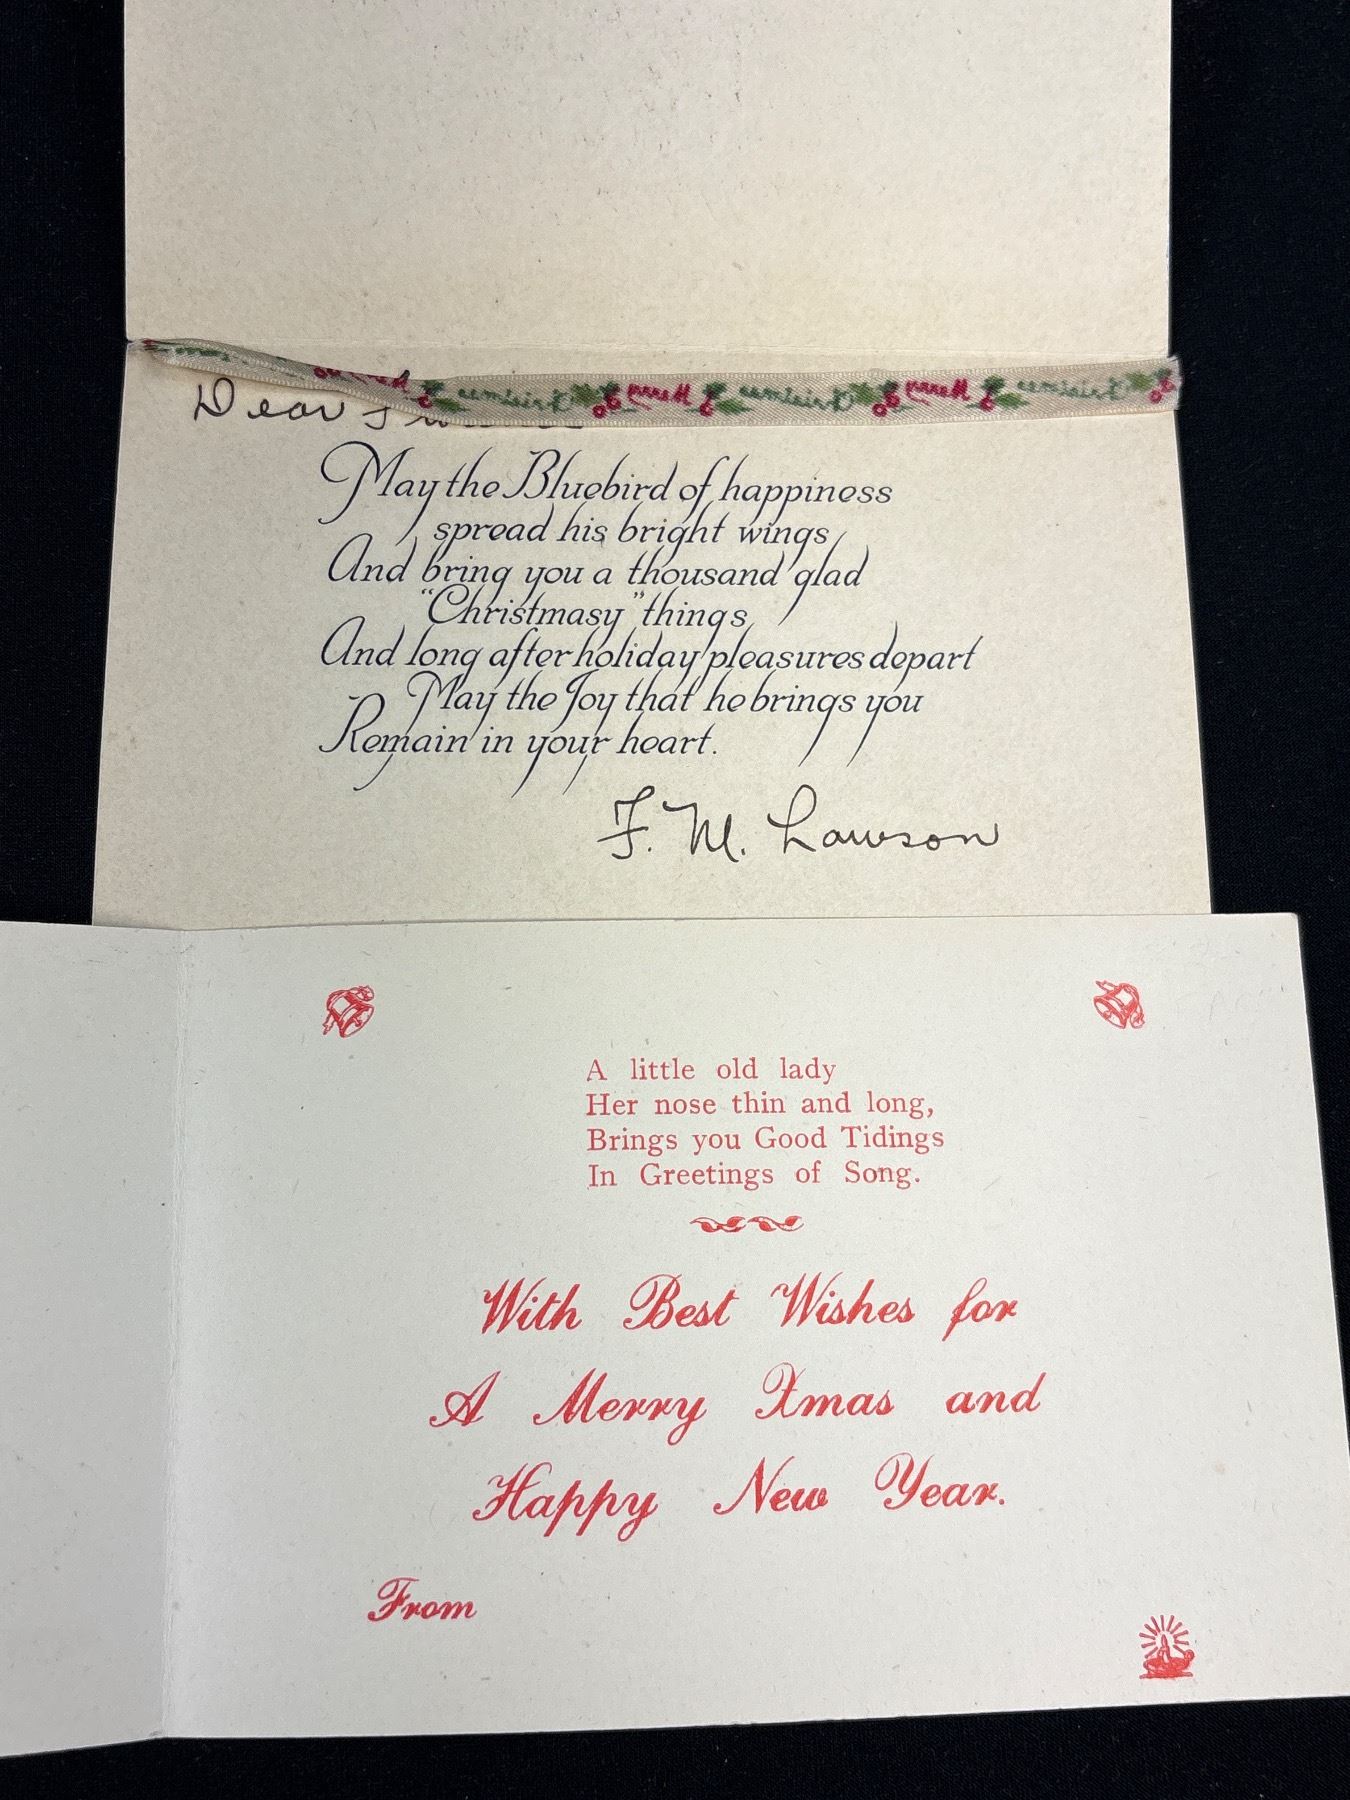 Dear
Merry Christmas Merry Christmas Merry Christmas
May the Bluebird of happiness
spread his bright wings
And bring you a thousand glad
"Christmasy" things
And long after holiday pleasures depart
May the Joy that he brings you
Remain in your heart.
F. M. Lawson
A little old lady
Her nose thin and long,
Brings you Good Tidings
In Greetings of Song.
With Best Wishes for
A Merry Xmas and
Happy New Year.
From